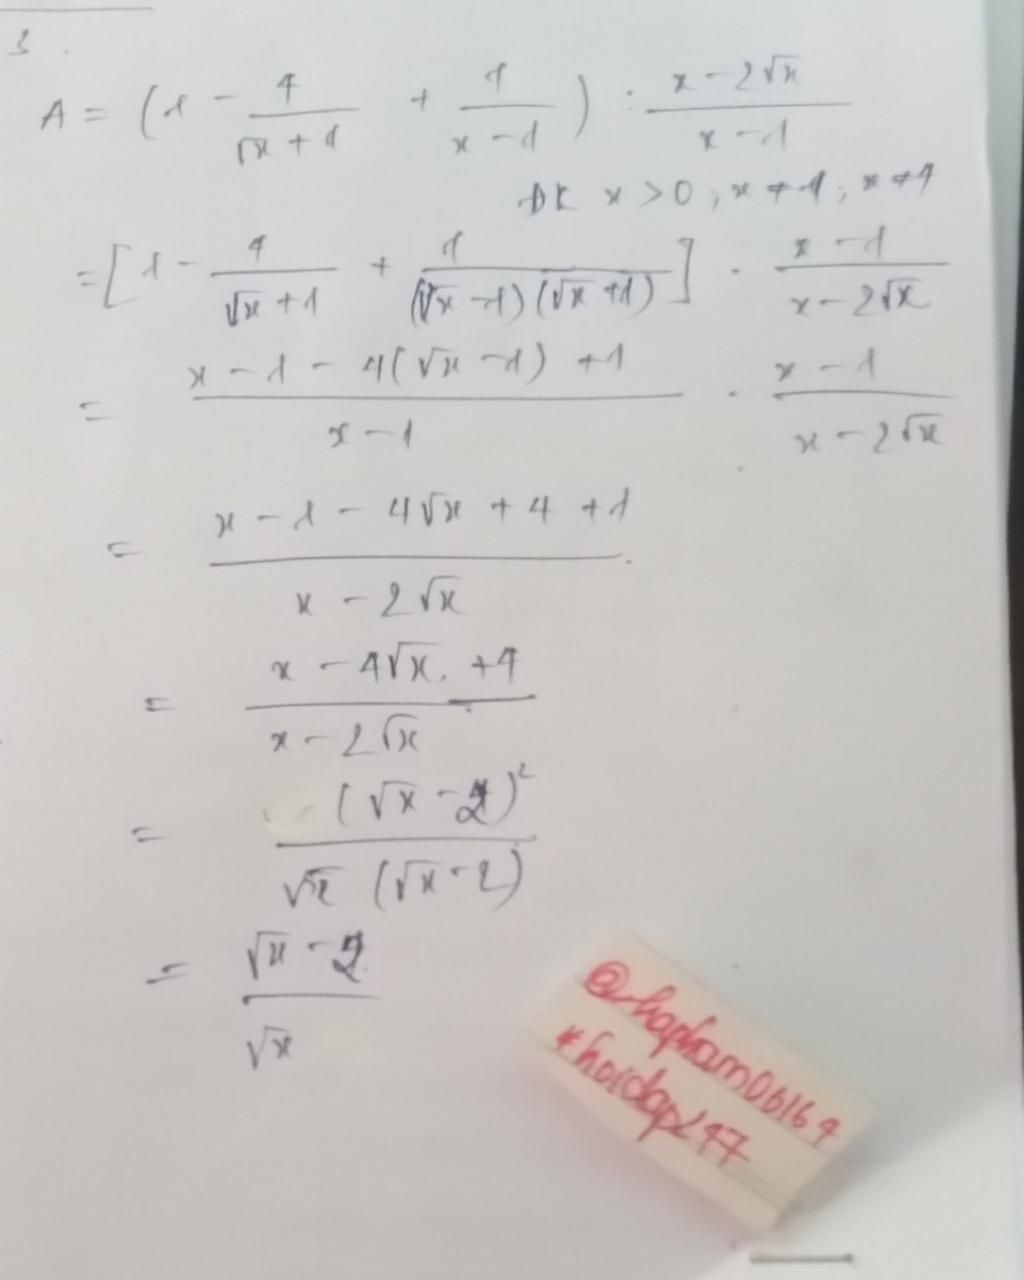 3.
A = (1 - 4/(√x + 1) + 1/(x - 1)) : (x - 2√x)/(x - 1)
ĐK x > 0 ; x ≠ 1 ; x ≠ 4
= [1 - 4/(√x + 1) + 1/((√x - 1)(√x + 1))] . (x - 1)/(x - 2√x)
= (x - 1 - 4(√x - 1) + 1)/(x - 1) . (x - 1)/(x - 2√x)
= (x - 1 - 4√x + 4 + 1)/(x - 2√x)
= (x - 4√x + 4)/(x - 2√x)
= (√x - 2)²/(√x (√x - 2))
= (√x - 2)/√x
@hapham06164
#hoidap247